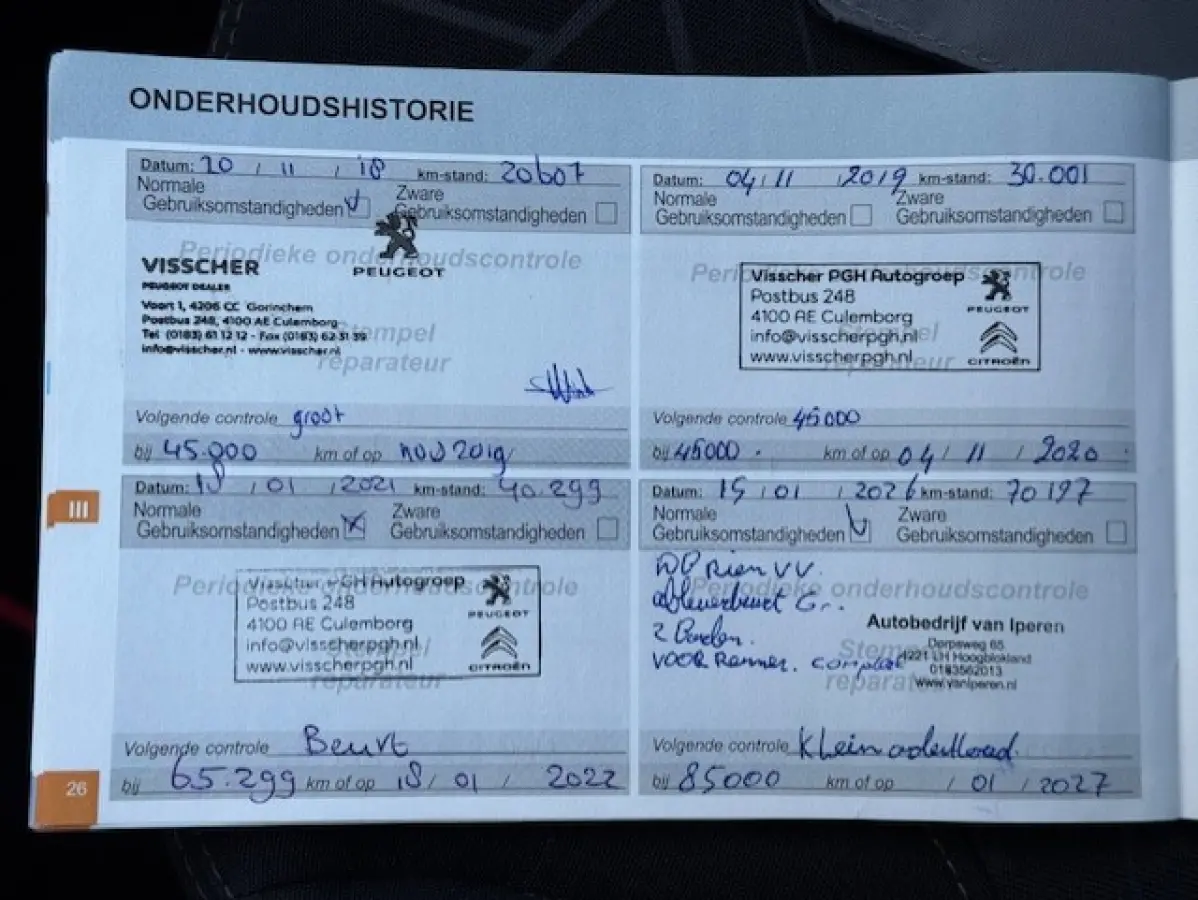 ONDERHOUDSHISTORIE
Datum: 20 / 11 / 18 km-stand: 20607
Normale Gebruiksomstandigheden Zware Gebruiksomstandigheden
Periodieke onderhoudscontrole
PEUGEOT
VISSCHER
PEUGEOT DEALER
Voort 1, 4206 CC Gorinchem
Postbus 248, 4100 AE Culemborg
Tel (0183) 61 12 12 - Fax (0183) 62 31 39
info@visscher.nl - www.visscher.nl
Stempel
reparateur
Volgende controle groot
bij 45.000 km of op nov 2019
Datum: 04 / 11 / 2019 km-stand: 30.001
Normale Gebruiksomstandigheden Zware Gebruiksomstandigheden
Periodieke onderhoudscontrole
Visscher PGH Autogroep
Postbus 248
4100 AE Culemborg
info@visscherpgh.nl
www.visscherpgh.nl
PEUGEOT
CITROËN
Stempel
reparateur
Volgende controle 45000
bij 45000 km of op 04 / 11 / 2020
Datum: 18 / 01 / 2021 km-stand: 40.299
Normale Gebruiksomstandigheden Zware Gebruiksomstandigheden
Periodieke onderhoudscontrole
Visscher PGH Autogroep
Postbus 248
4100 AE Culemborg
info@visscherpgh.nl
www.visscherpgh.nl
PEUGEOT
CITROËN
Stempel
reparateur
Volgende controle Beurt
bij 65.299 km of op 18 / 01 / 2022
Datum: 15 / 01 / 2026 km-stand: 70197
Normale Gebruiksomstandigheden Zware Gebruiksomstandigheden
Periodieke onderhoudscontrole
Rien VV.
Gr.
2 Banden.
VOOR Remmen. compleet
Autobedrijf van Iperen
Dorpsweg 65
4221 LH Hoogblokland
0183562013
www.vanIperen.nl
Stempel
reparateur
Volgende controle Klein onderhoud
bij 85000 km of op / 01 / 2027
III
26